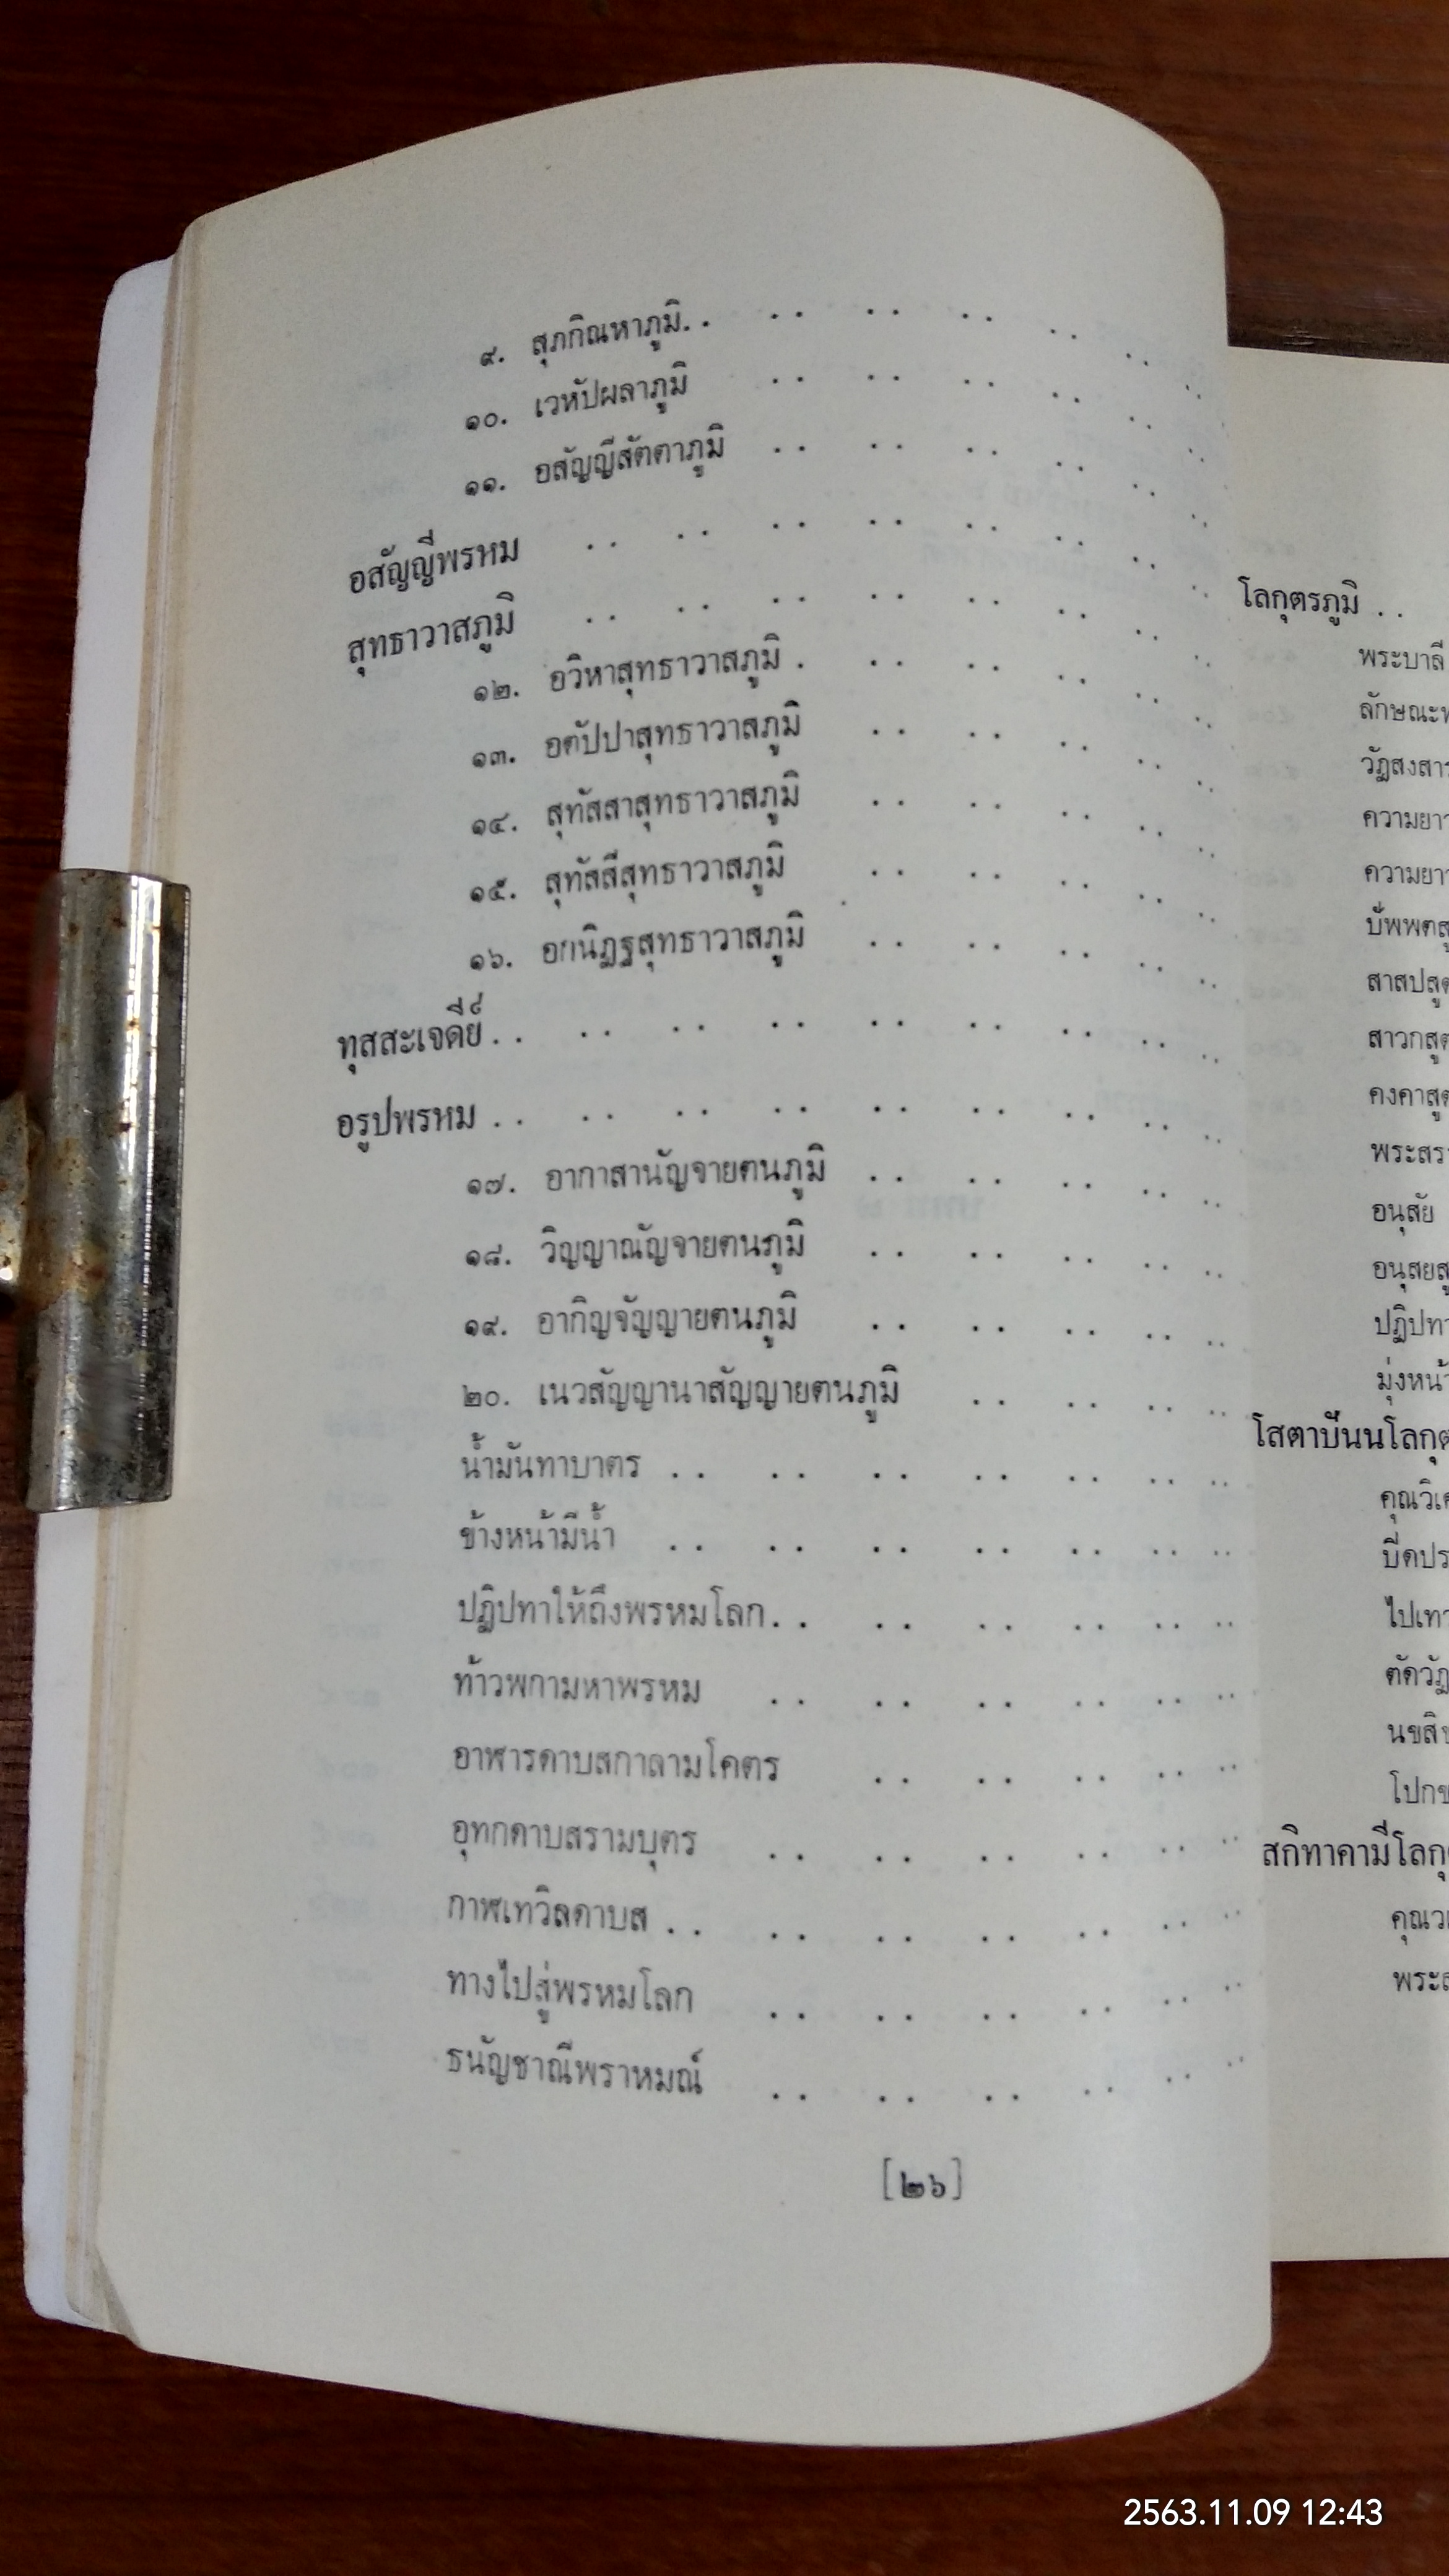 ๙. สุภกิณหาภูมิ. . . . . . . . . . . . .
๑๐. เวหัปผลาภูมิ . . . . . . . . . . . .
๑๑. อสัญญีสัตตาภูมิ . . . . . . . . . . . .
อสัญญีพรหม . . . . . . . . . . . . . . . .
สุทธาวาสภูมิ . . . . . . . . . . . . . . . .
๑๒. อวิหาสุทธาวาสภูมิ . . . . . . . . . . .
๑๓. อตัปปาสุทธาวาสภูมิ . . . . . . . . . .
๑๔. สุทัสสาสุทธาวาสภูมิ . . . . . . . . . .
๑๕. สุทัสสีสุทธาวาสภูมิ . . . . . . . . . .
๑๖. อกนิฏฐสุทธาวาสภูมิ . . . . . . . . . .
ทุสสะเจดีย์ . . . . . . . . . . . . . . . . . .
อรูปพรหม . . . . . . . . . . . . . . . . . .
๑๗. อากาสานัญจายตนภูมิ . . . . . . . . . .
๑๘. วิญญาณัญจายตนภูมิ . . . . . . . . . .
๑๙. อากิญจัญญายตนภูมิ . . . . . . . . . .
๒๐. เนวสัญญานาสัญญายตนภูมิ . . . . . . . .
น้ำมันทาบาตร . . . . . . . . . . . . . .
ข้างหน้ามีน้ำ . . . . . . . . . . . . . .
ปฏิปทาให้ถึงพรหมโลก. . . . . . . . . . . .
ท้าวพกามหาพรหม . . . . . . . . . . . .
อาฬารดาบสกาลามโคตร . . . . . . . . . .
อุทกดาบสรามบุตร . . . . . . . . . . . .
กาฬเทวิลดาบส . . . . . . . . . . . . . .
ทางไปสู่พรหมโลก . . . . . . . . . . . .
ธนัญชาณีพราหมณ์ . . . . . . . . . . . .
[๒๖]
โลกุตรภูมิ . .
พระบาลี
ลักษณะ
วัฏสงสาร
ความยา
ความยา
บัพพตสู
สาสปสูต
สาวกสูต
คงคาสูต
พระสร
อนุสัย
อนุสยสู
ปฏิปทา
มุ่งหน้า
โสตาบันนโลกุต
คุณวิเศ
ปิดปร
ไปเทว
ตัดวัฏ
นขสิข
โปกข
สกิทาคามีโลกุ
คุณว
พระส
2563.11.09 12:43